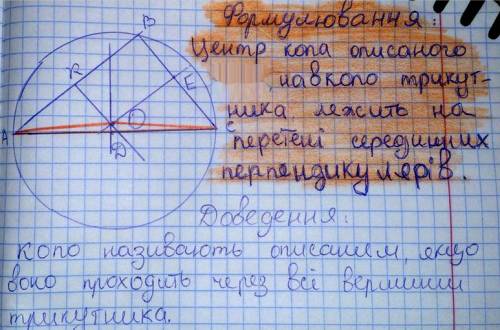 Формулювання:
Центр кола описаного
навколо трикут-
ника лежить на
перетені середшних
перпендикулярів.
B
R
E
O
A
C
D
Доведення:
Коло називають описаним, якщо
воно проходить через всі вершини
трикутника.